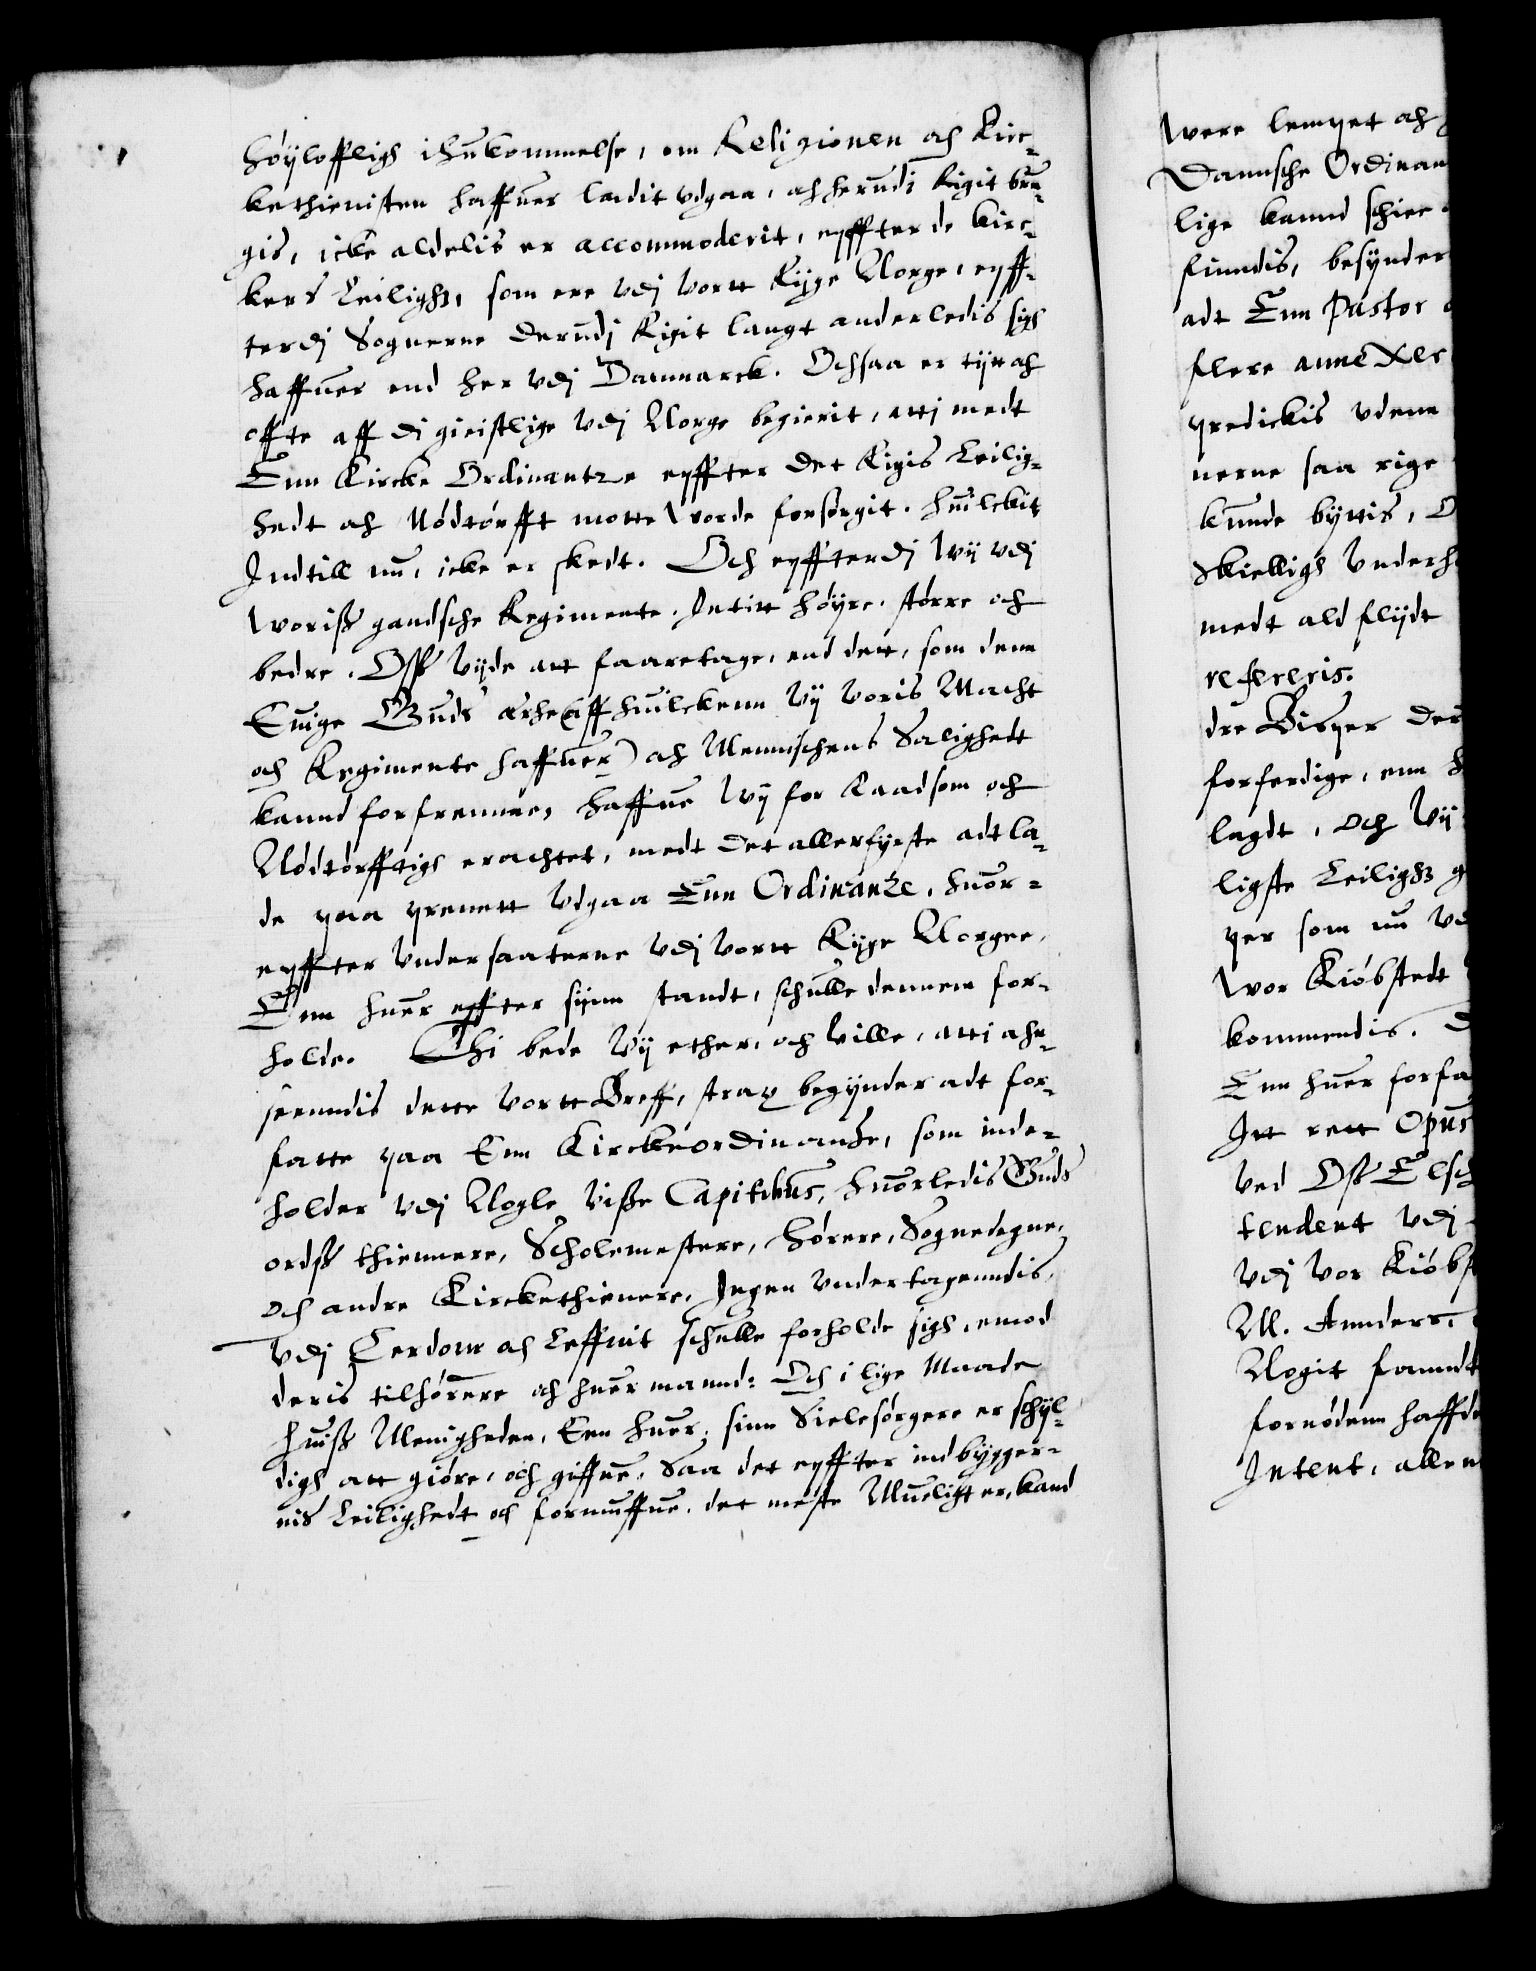 Høyloffligh ihukommelse, om Religionen och Kirc¬
kethienisten haffuer ladit vdgaa, och herudi Rigit bru¬
gis, icke aldelis er accommoderit, epffter de Kirc¬
kers Leilighz, som ere vdj vortt Rige Norge, epff¬
terdj Sognerne derudj Rigit langt anderledis sigh
haffuer end her vdj Danmarck. Och saa er tijtt och
offte aff dj gieistlige vdj Norge begierit, atti medt
Enn Kircke Ordinantze epffter det Rigis Leilig¬
hedt och Nødtørfft motte worde forsørgit. huilckit
Indtill nu, icke er skedt. Och epffterdj wij vdj
woriss gandsche Regimente, Intitt høyre, større och
bedre. Oss vijde att faaretage, end dett, som denn
Euige Guds ærhe (aff huilckenn vij voris Macht
och Regimente haffuer) och Mennischens Salighedt
kannd forfremme, haffue wij for Raadsom och
Nødtørfftigh erachtet, medt det allerførste adt la¬
de paa prenntt vdgaa Enn Ordinantze, huor¬
epffter vndersaatterne vdj vortt Rige Norgee,
Enn huer epffter synn standt, schulle dennem for¬
holde. Thi bede vij ether, och ville, atti ahn¬
seenndis dette vortt Breff, strax begynder adt for¬
fatte paa Enn Kirckeordinantze, som inde¬
holder vdj Nogle visse Capitibus, huorledis Guds
ordss thiennere, Scholemestere, Hørere, Sognedegne,
och andre Kirckethienere, Ingen vndertagenndis,
vdj Lerdom och Leffnit schulle forholde sigh, emod
deris tilhørere och huer mannd: Och i lige Maade
huiss Menigheden, Een huer, sinn Sielesørgere er schyl¬
digh att giøre, och giffue, Saa det epffter indbygger¬
nis Leilighedt och formuffue, det meste Mueligt er, kand
were lempet och
Dannsche Ordinan
lige kannd schiee
finndis, besynder
adt Enn Pastor
flere annexer
predickis vdenn
nerne saa ringe
kunde byttis,
Skielligh vnderh
medt ald flijdt
refereris.
dre Bisper der
forferdige, enn
lagdt, och vij
ligste Leilighz
per som nu vd
wor Kiøbstedt
kommendis.
Enn huer forfa
Itt rett Opus
ved Oss Elsch
tendent vdj
vdj vor Kiøbst
M. Annders,
Nogit fanndt
fornødenn haffde
Intent, alle